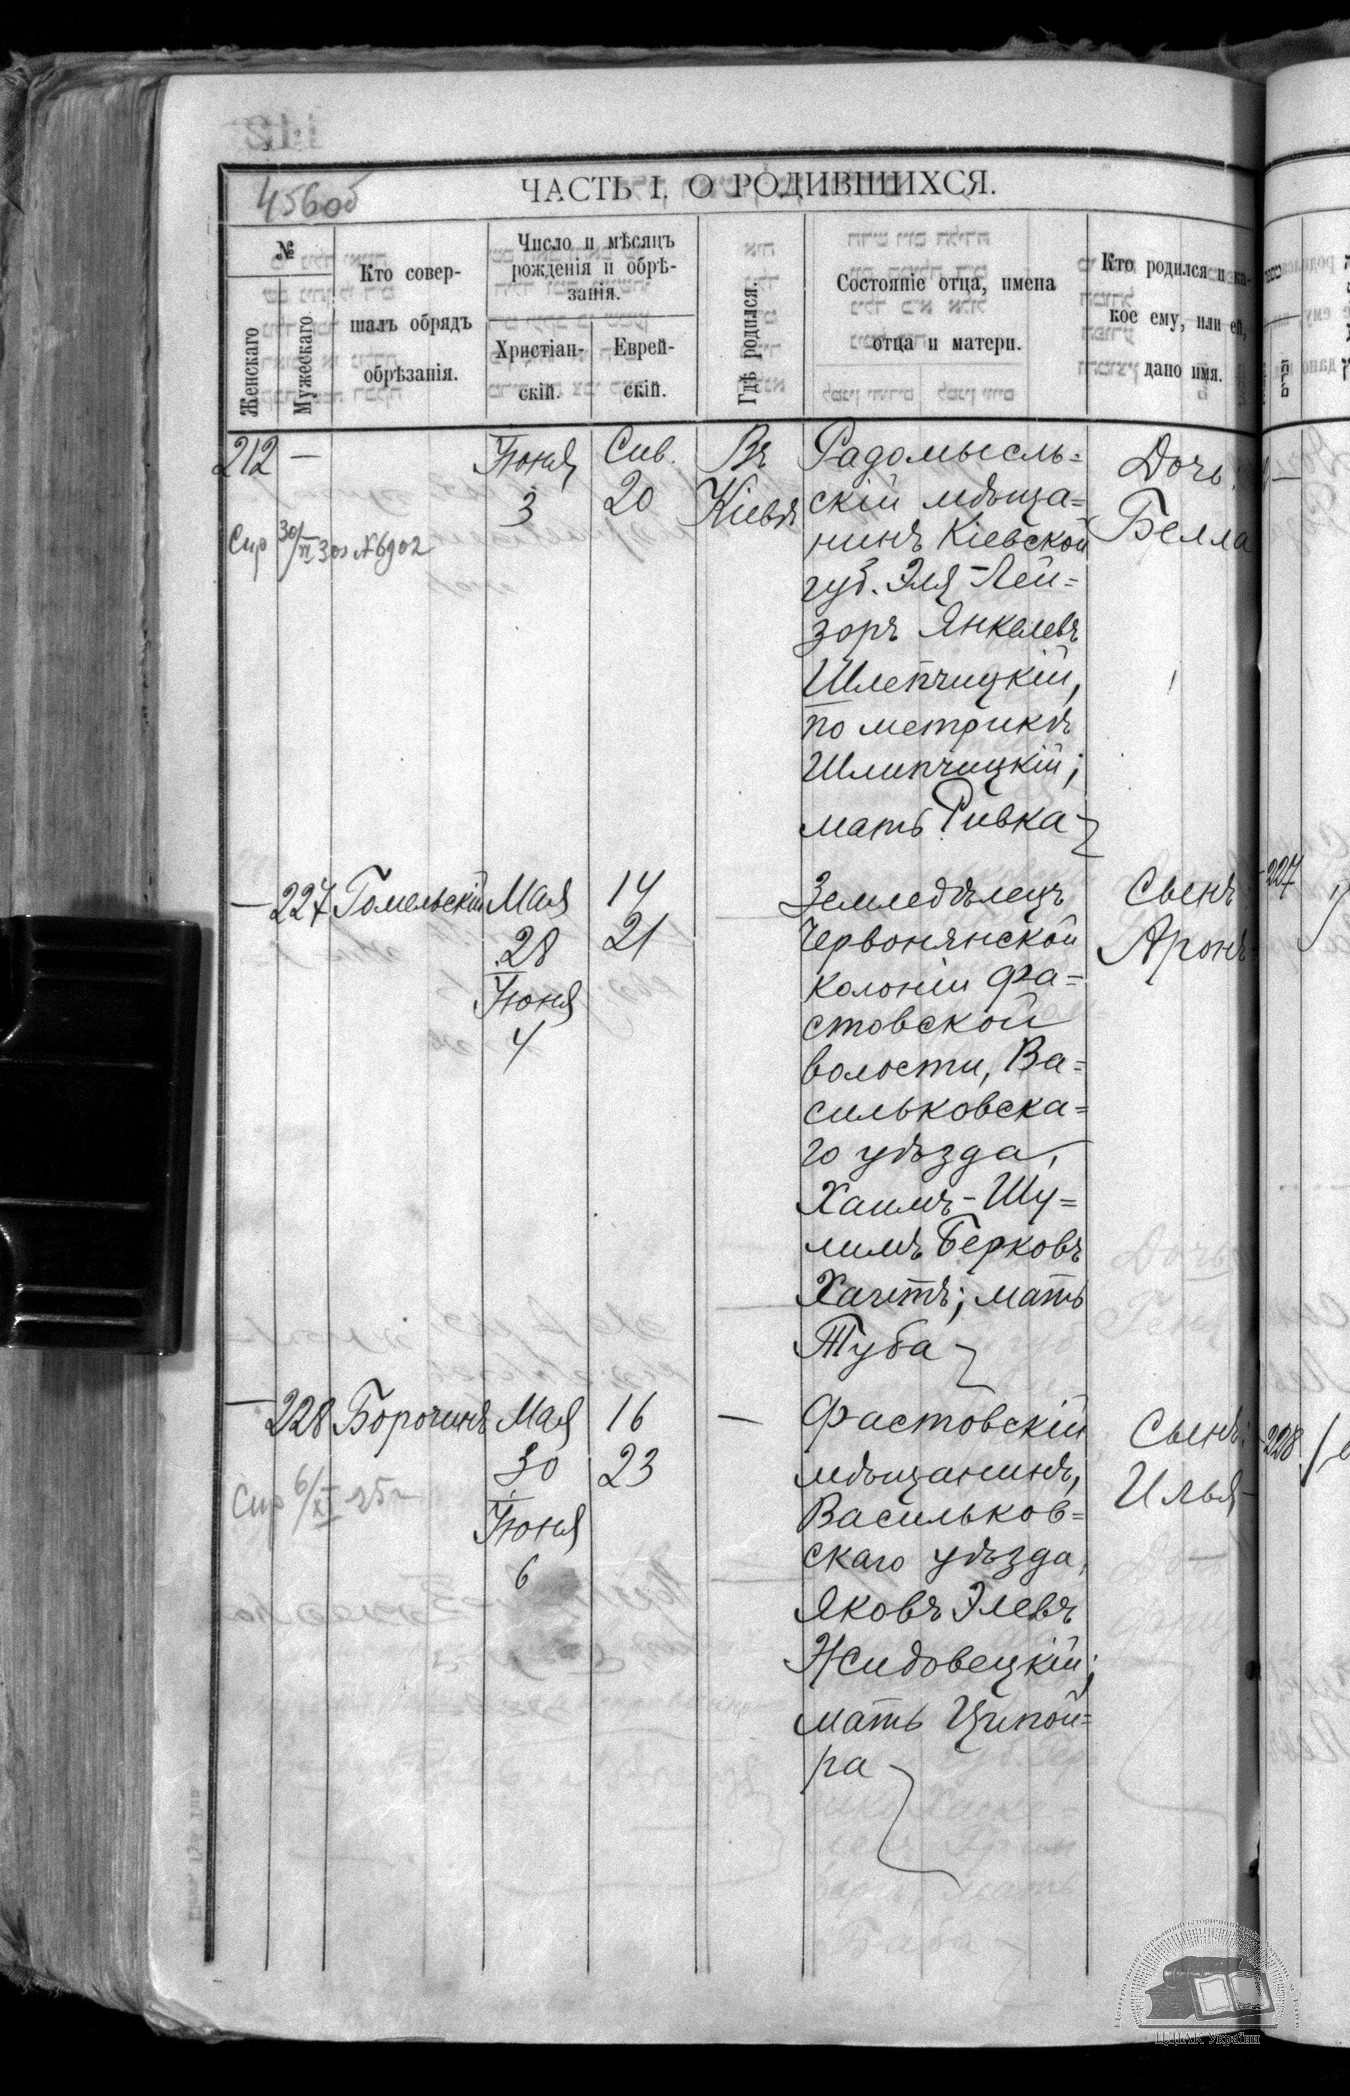 456об
ЧАСТЬ I. О РОДИВШИХСЯ.
№
Женскаго
Мужескаго
Кто совер-
шалъ обрядъ
обрѣзанія.
Число и мѣсяцъ
рожденія и обрѣ-
занія.
Христіан-
скій.
Еврей-
скій.
Гдѣ родился.
Состояніе отца, имена
отца и матери.
Кто родился и ка-
кое ему, или ей,
дано имя.
212 —
Іюня
3
Сив.
20
Въ
Кіевѣ
Радомысль=
скій мѣща=
нинъ Кіевской
губ. Эля-Лей=
зоръ Янкелевъ
Шлепчицкій,
по метрикѣ
Шлипчицкій;
мать Ривка
Дочь:
Белла
Спр 30/VI 30 №6902
— 227 Гомельскій
Мая
28
Іюня
4
14
21
Земледѣлецъ
Червонянской
колоніи Фа=
стовской
волости, Ва=
сильковска=
го уѣзда,
Хаимъ-Шу=
лимъ Берковъ
Хаитъ; мать
Туба
Сынъ:
Аронъ
— 228 Борочинъ
Мая
30
Іюня
6
16
23
—
Фастовскій
мѣщанинъ,
Васильков=
скаго уѣзда,
Яковъ Элевъ
Жидовецкій;
мать Ципой=
ра
Сынъ:
Илья
Спр 6/XI 25
227
228
ЦДІАК України